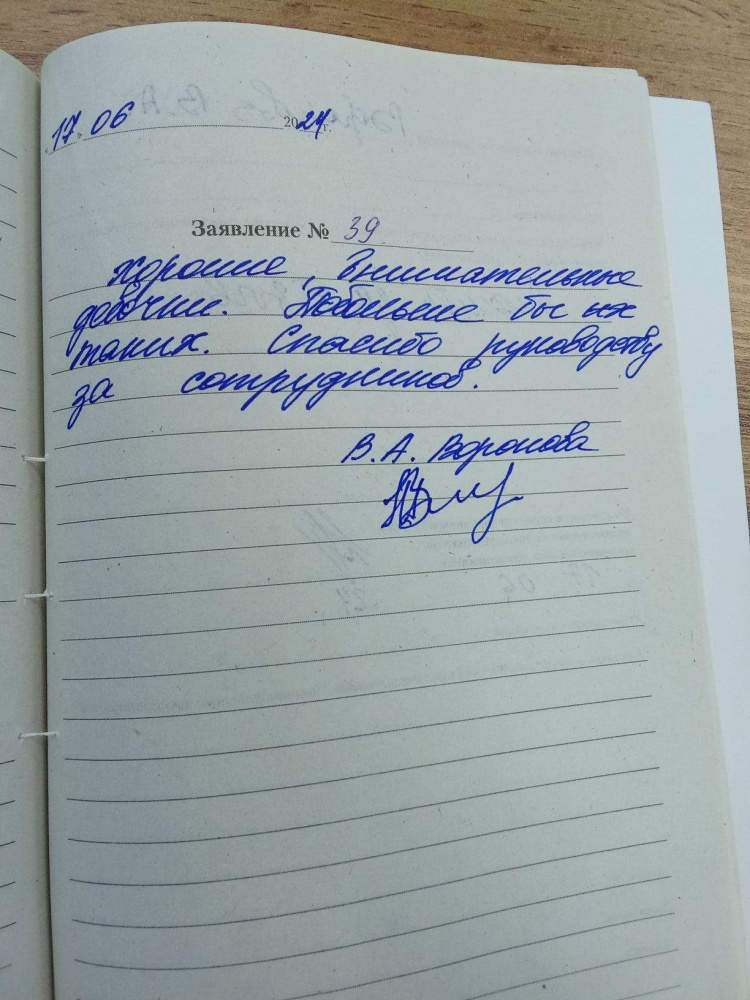 "17" 06 2024 г.
Заявление № 39
Хорошие, внимательные
девочки. Побольше бы их
таких. Спасибо руководству
за сотрудников.
В.А. Воронова